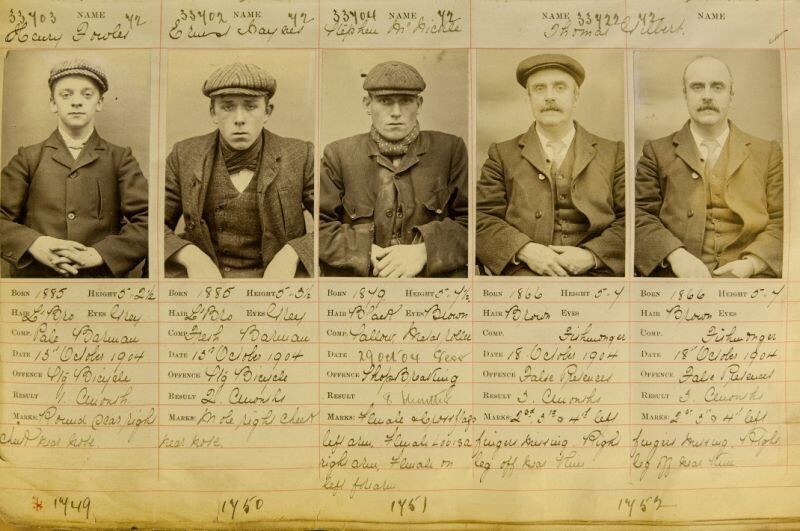 33703 NAME 72 33702 NAME 72 33704 NAME 72 NAME 33722 72 NAME
Henry Fowler Ernest Haynes Stephen Thomas Gilbert.
BORN 1885 HEIGHT 5-2½
HAIR Lt Bro EYES Grey
COMP. Pale Barman
DATE 15th October 1904
OFFENCE Bicycle
RESULT 1. C. month
MARKS: Round scar right
cheek near nose.
1749
BORN 1885 HEIGHT 5-3½
HAIR Lt Bro EYES Grey
COMP. Fresh Barman
DATE 15th October 1904
OFFENCE Bicycle
RESULT 2. C. months
MARKS: Mole right cheek
near nose.
1750
BORN HEIGHT 5-4½
HAIR Black EYES Brown
COMP. Sallow
DATE 29 Oct 04
OFFENCE Shop Breaking
RESULT
MARKS: Female
left arm, Female Louisa
right arm, Female on
left forearm
1751
BORN 1866 HEIGHT 5-4
HAIR Brown EYES
COMP. Fishmonger
DATE 18 October 1904
OFFENCE False Pretences
RESULT 3. C. months
MARKS: 2nd 3rd & 4th left
fingers missing. Right
leg off near knee
1752
BORN 1866 HEIGHT 5-4
HAIR Brown EYES
COMP. Fishmonger
DATE 18th October 1904
OFFENCE False Pretences
RESULT 3. C. months
MARKS: 2nd 3rd & 4th left
fingers missing, & Right
leg off near knee